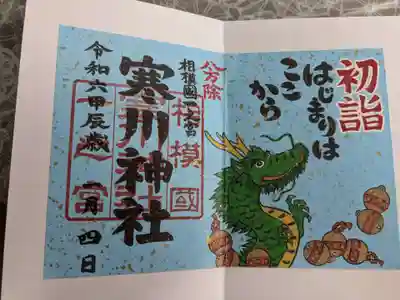 初詣
はじまりは
ここから
八方除
相模國一之宮
寒川神社
令和六甲辰歳 一月四日
相模國